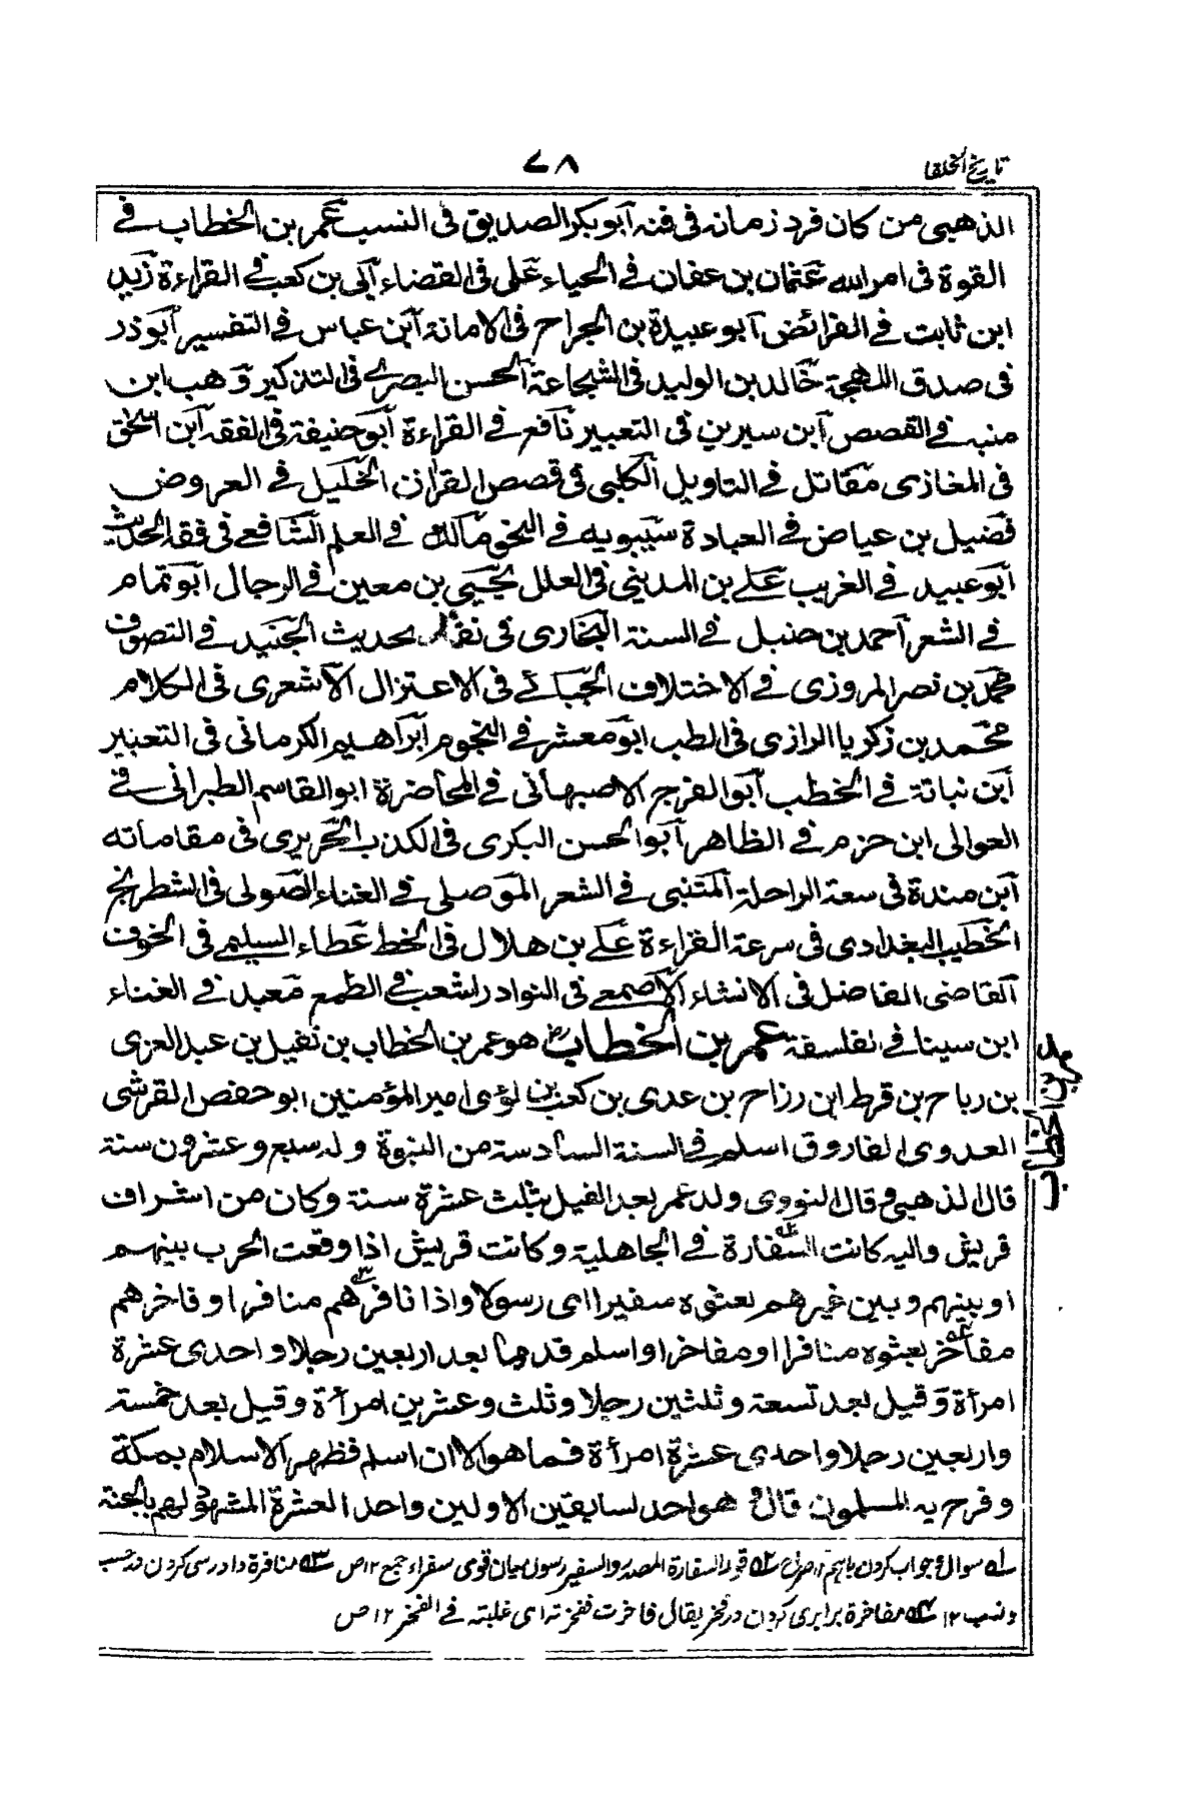 تاريخ الخلفا
٧٨
الذهبى من كان فرد زمانه فى فنه ابوبكر الصديق فى النسب عمر بن الخطاب فے
القوة فى امر الله عثمان بن عفان فے الحياء على فى القضاء ابى بن كعب فے القراءة زيد
ابن ثابت فے الفرائض ابو عبيدة بن الجراح فى الامانة ابن عباس فے التفسير ابوذر
فى صدق اللهجة خالد بن الوليد فى الشجاعة الحسن البصرے فى التذكير وهب ابن
منبه فے القصص ابن سيرين فى التعبير نافع فے القراءة ابو حنيفة فى الفقه ابن اسحٰق
فى المغازى مقاتل فے التاويل الكلبى فى قصص القراٰن الخليل فے العروض
فضيل بن عياض فے العبادة سيبويه فے النحو مالك فے العلم الشافعے فى فقه الحديث
ابو عبيد فے الغريب علے بن المدينى فى العلل يحيى بن معين فے الرجال ابو تمام
فے الشعر احمد بن حنبل فے السنة البخارى فى نقد الحديث الجنيد فے التصوف
محمد بن نصر المروزى فے الاختلاف الجبائے فى الاعتزال الاشعرى فى الكلام
محمد بن زكريا الرازى فى الطب ابو معشر فے النجوم ابراهيم الكرمانى فى التعبير
ابن نباتة فے الخطب ابو الفرج الاصبهانى فے المحاضرة ابو القاسم الطبرانى فے
العوالى ابن حزم فے الظاهر ابو الحسن البكرى فى الكذب الحريرى فى مقاماته
ابن مندة فى سعة الراحلة المتنبى فے الشعر الموصلى فے الغناء الصولى فى الشطرنج
الخطيب البغدادى فى سرعة القراءة علے بن هلال فى الخط عطاء السليمے فى الخوف
القاضى الفاضل فى الانشاء الاصمعے فى النوادر اشعب فے الطمع معبد فے الغناء
ابن سينا فے الفلسفة عمر بن الخطاب رض هو عمر بن الخطاب بن نفيل بن عبد العزى
بن رباح بن قرط ابن رزاح بن عدى بن كعب بن لؤى امير المؤمنين ابو حفص القرشى
العدوى الفاروق اسلم فے السنة السادسة من النبوة وله سبع وعشرون سنة
قال الذهبى وقال النووى ولد عمر بعد الفيل بثلث عشرة سنة وكان من اشراف
قريش واليه كانت السفارة فے الجاهلية وكانت قريش اذا وقعت الحرب بينهم
او بينهم وبين غيرهم بعثوه سفيرا اى رسولا واذا نافرهم منافر او فاخرهم
مفاخر بعثوه منافرا او مفاخرا واسلم قديما بعد اربعين رجلا واحدى عشرة
امرأة وقيل بعد تسعة وثلثين رجلا وثلث وعشرين امرأة وقيل بعد خمسة
واربعين رجلا واحدى عشرة امرأة فما هو الا ان اسلم فظهر الاسلام بمكة
وفرح به المسلمون قال وهو احد السابقين الاولين واحد العشرة المشهود لهم بالجنة
عمر بن الخطاب
له سوال وجواب كردن باہم ١٢ صراح ٢ه قوله السفارة المصدر والسفير رسول ميان قومى سفراء جمع ١٢ ص ٣ه منافرة داورسى كردن در حسب
ونسب ١٢ ٤ه مفاخرة برابرى كردن در فخر يقال فاخرت ففخرته اى غلبته فے الفخر ١٢ ص